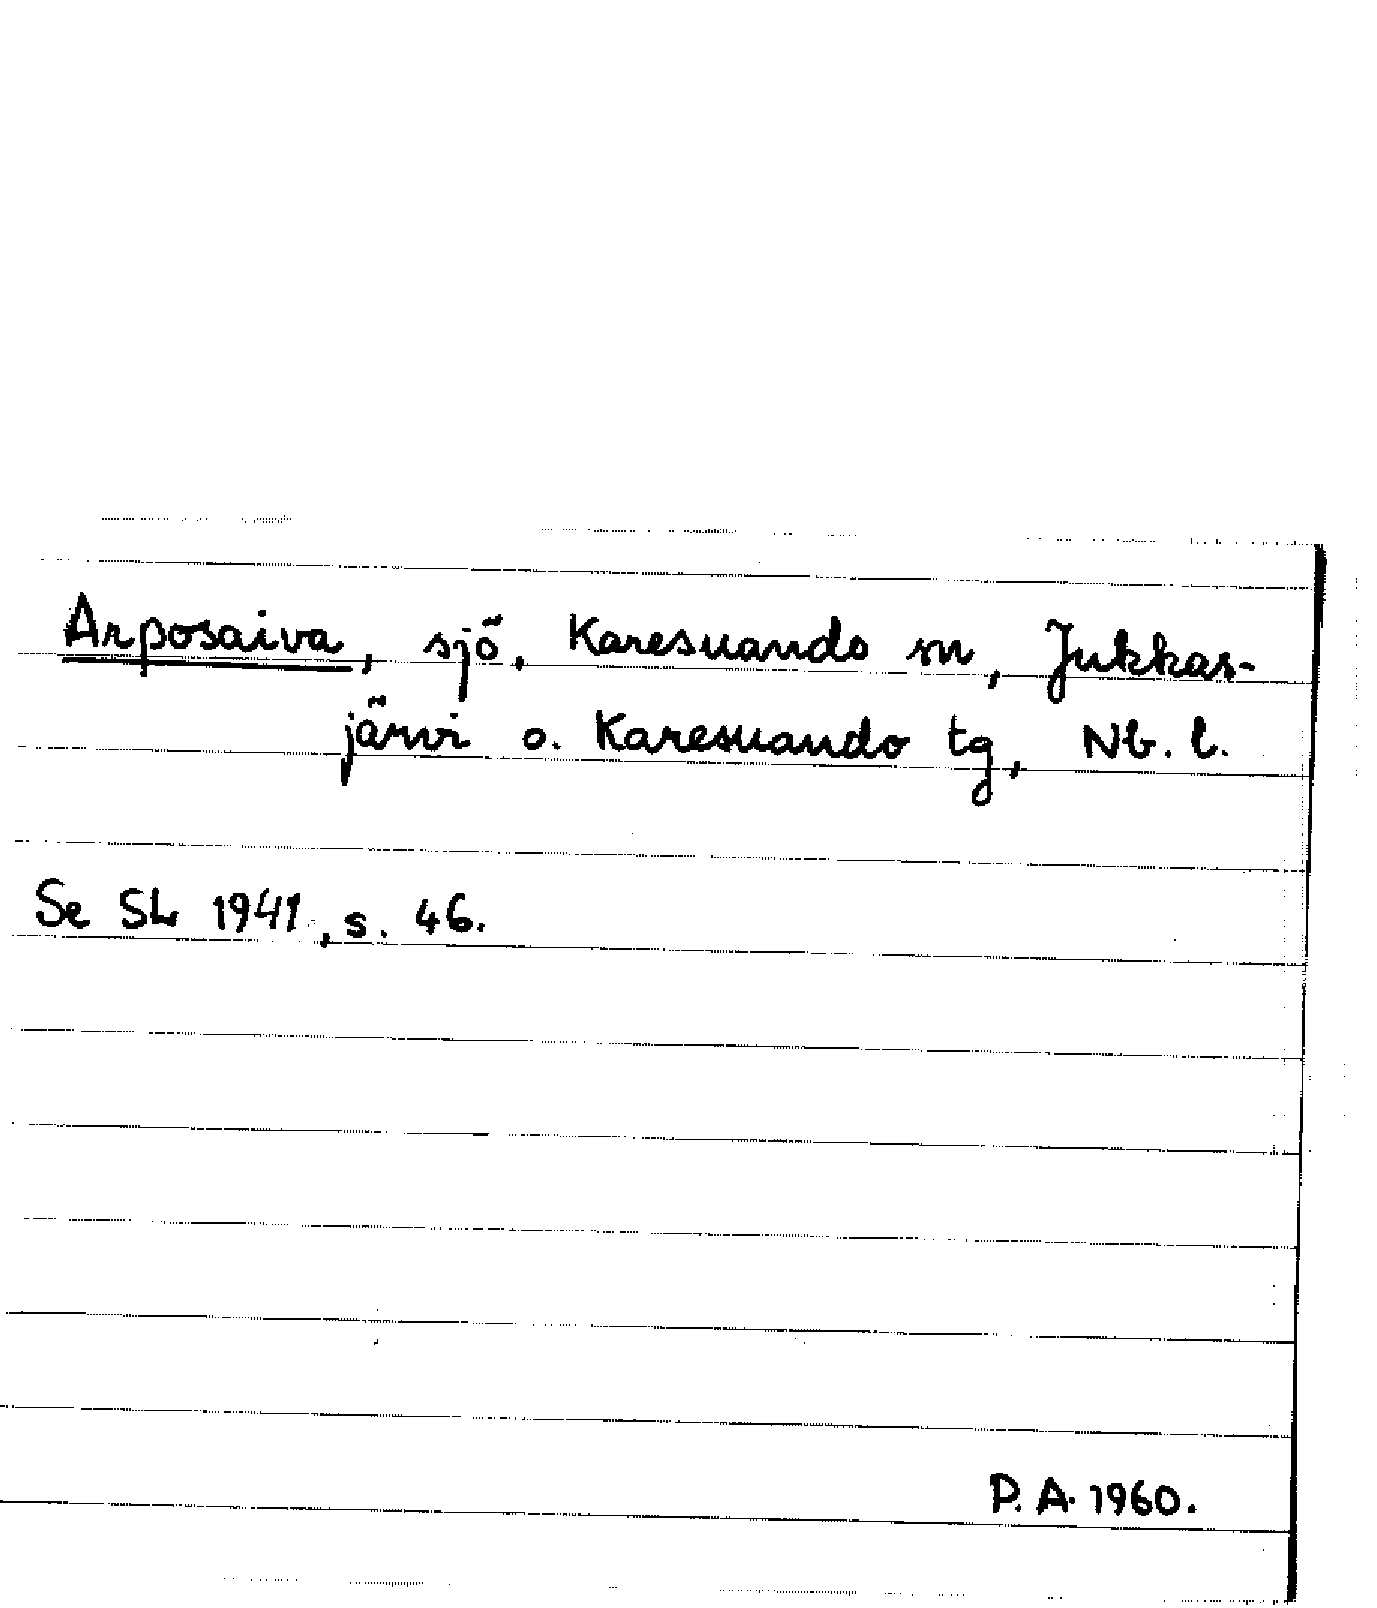 Arposaiva, sjö, Karesuando sn, Jukkas-
järvi o. Karesuando tg, Nb. l.
Se SL 1941, s. 46.
P. A. 1960.